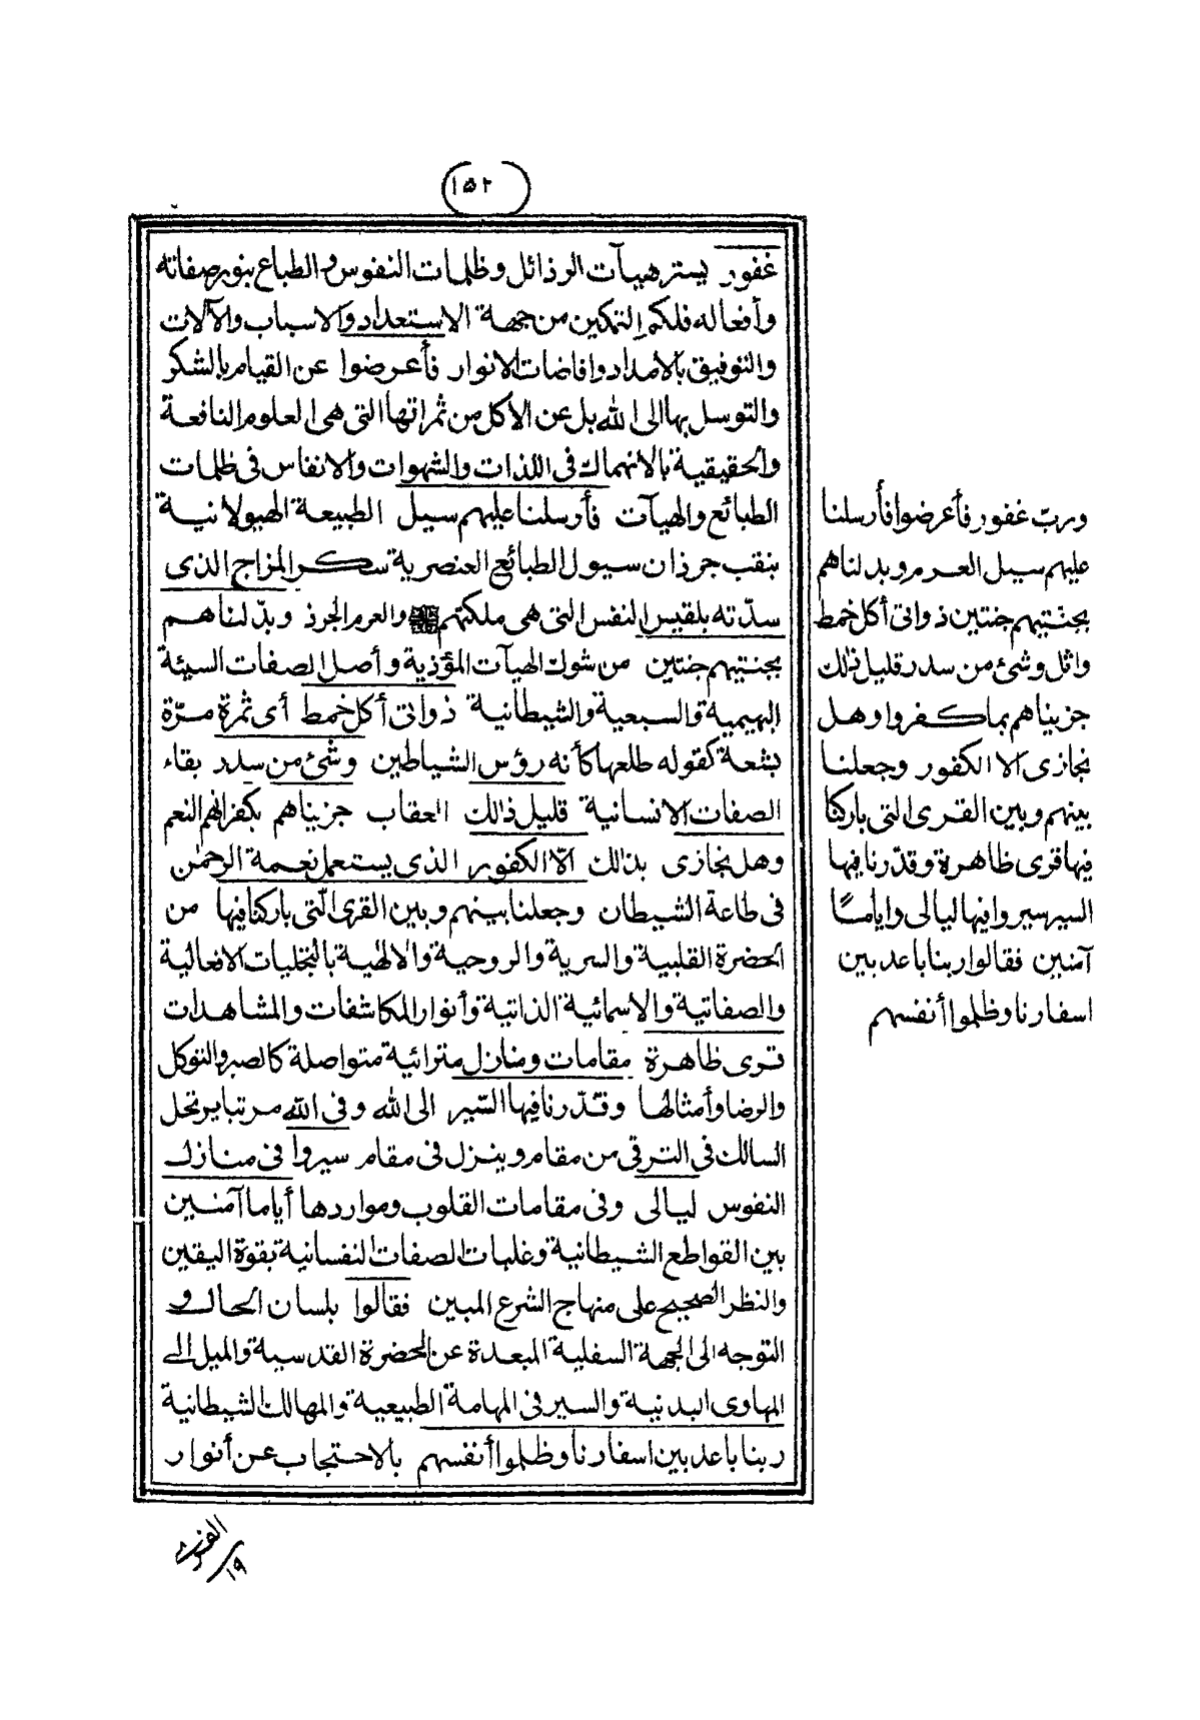 (١٥٢)
غفور يستر هيآت الرذائل وظلمات النفوس والطباع بنور صفاته
وأفعاله فلكم التمكين من جهة الاستعداد والاسباب والآلات
والتوفيق بالامداد وافاضات الانوار فأعرضوا عن القيام بالشكر
والتوسل بها الى الله بل عن الاكل من ثمراتها التى هى العلوم النافعة
والحقيقية بالانهماك فى اللذات والشهوات والانفاس فى ظلمات
الطبائع والهيآت فأرسلنا عليهم سيل الطبيعة الهيولانية
بنقب جرذان سيول الطبائع العنصرية سكر المزاج الذى
سدّته بلقيس النفس التى هى ملكتهم والعرم الجرذ وبدّلناهم
بجنتيهم جنتين من شوك الهيآت المؤذية وأصل الصفات السيئة
البهيمية والسبعية والشيطانية ذواتى أكل خمط أى ثمرة مرّة
بشعة كقوله طلعها كأنه رؤس الشياطين وشئ من سدر بقاء
الصفات الانسانية قليل ذلك العقاب جزيناهم بكفرانهم النعم
وهل نجازى بذلك الّا الكفور الذى يستعمل نعمة الرحمٰن
فى طاعة الشيطان وجعلنا بينهم وبين القرى الّتى باركنا فيها من
الحضرة القلبية والسرية والروحية والالهية بالتجليات الافعالية
والصفاتية والاسمائية الذاتية وأنوار المكاشفات والمشاهدات
قرى ظاهرة مقامات ومنازل مترائية متواصلة كالصبر والتوكل
والرضا وأمثالها وقدّرنا فيها السّير الى الله وفى الله مرتبا يرتحل
السالك فى الترقى من مقام وينزل فى مقام سيروا فى منازل
النفوس ليالى وفى مقامات القلوب ومواردها أياما آمنين
بين القواطع الشيطانية وغلبات الصفات النفسانية بقوة اليقين
والنظر الصحيح على منهاج الشرع المبين فقالوا بلسان الحال و
التوجه الى الجهة السفلية المبعدة عن الحضرة القدسية والميل الى
المهاوى البدنية والسير فى المهامة الطبيعية والمهالك الشيطانية
ربنا باعد بين اسفارنا وظلموا أنفسهم بالاحتجاب عن أنوار
وربّ غفور فأعرضوا فأرسلنا
عليهم سيل العرم وبدلناهم
بجنّتيهم جنتين ذواتى أكل خمط
واثل وشئ من سدر قليل ذلك
جزيناهم بما كفروا وهل
نجازى الا الكفور وجعلنا
بينهم وبين القرى التى باركنا
فيها قرى ظاهرة وقدّرنا فيها
السير سيروا فيها ليالى واياما
آمنين فقالوا ربنا باعد بين
اسفارنا وظلموا أنفسهم
١٩